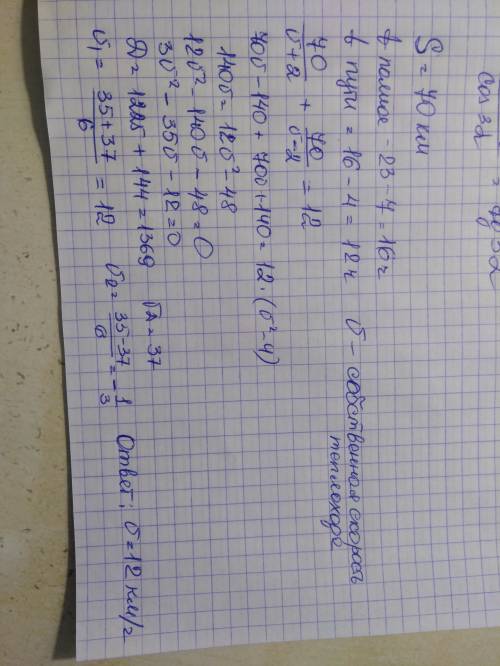 cos 3α = tg 3α
S = 70 км
t полное - 23 - 7 = 16 ч
t пути = 16 - 4 = 12 ч   v - собственная скорость теплохода
70/(v+2) + 70/(v-2) = 12
70v - 140 + 70v + 140 = 12·(v² - 4)
140v = 12v² - 48
12v² - 140v - 48 = 0
3v² - 35v - 12 = 0
D = 1225 + 144 = 1369   √D = 37
v₁ = (35+37)/6 = 12   v₂ = (35-37)/6 = -1/3   Ответ: v = 12 км/ч